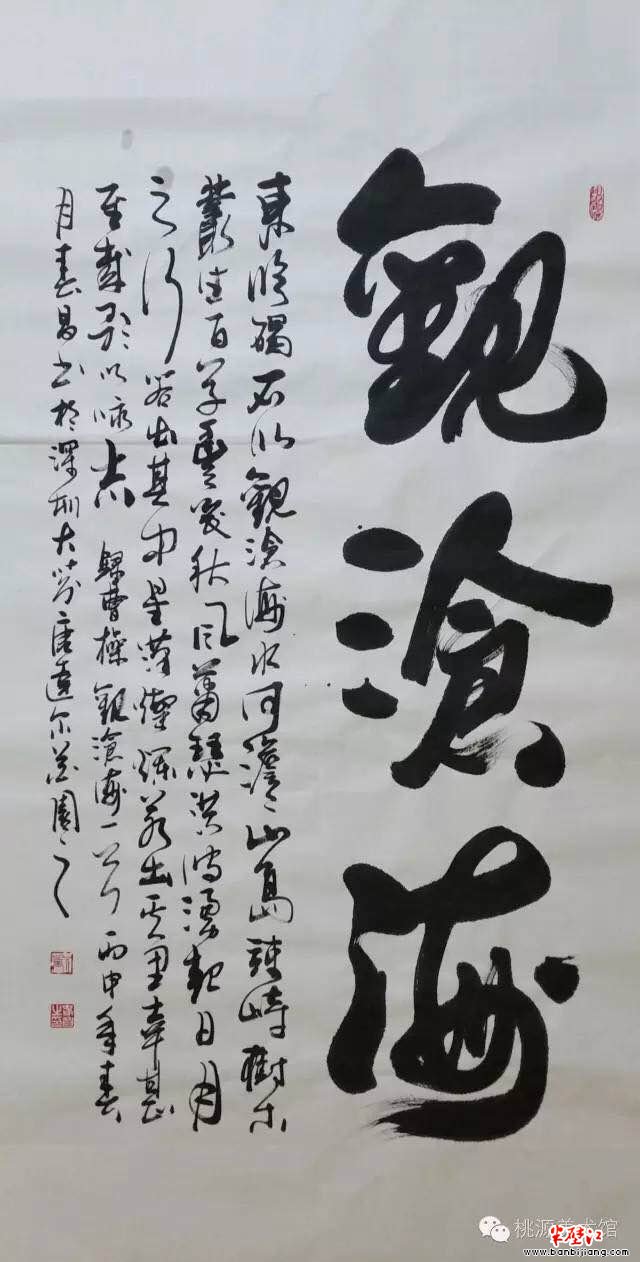 觀滄海
東臨碣石以觀滄海水何澹〻山島竦峙樹木
叢生百草豐茂秋風蕭瑟洪波湧起日月
之行若出其中星漢燦爛若出其里幸甚
至哉歌以咏志 曹操觀滄海一首 丙申年春
月春昌书於深圳大芬
桃源美术馆
半壁江
www.banbijiang.com